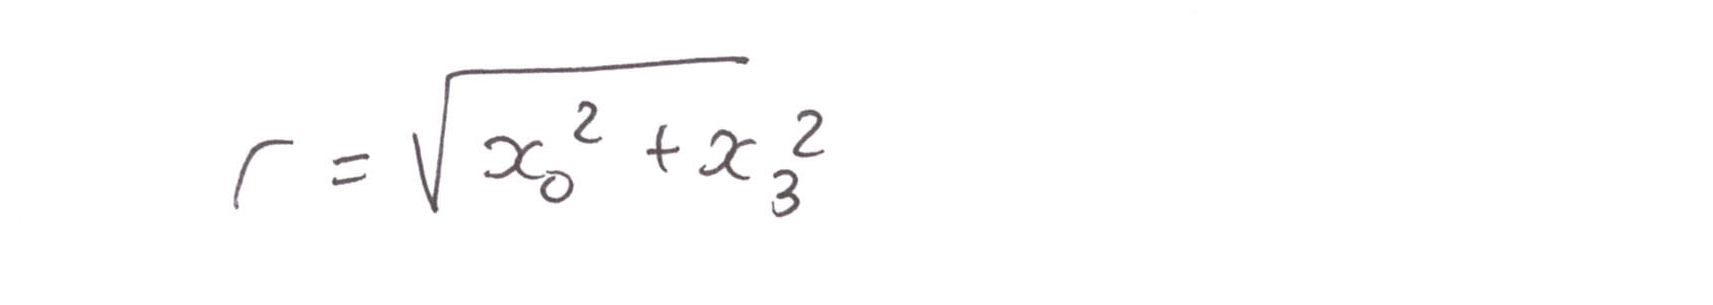 r = √(x₀² + x₃²)